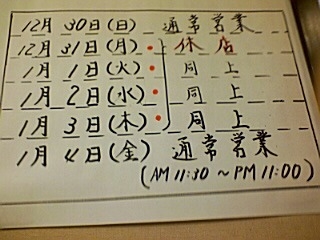 12月30日(日) 通常営業
12月31日(月) 休店
1月1日(火) 同上
1月2日(水) 同上
1月3日(木) 同上
1月4日(金) 通常営業
(AM 11:30 ~ PM 11:00)